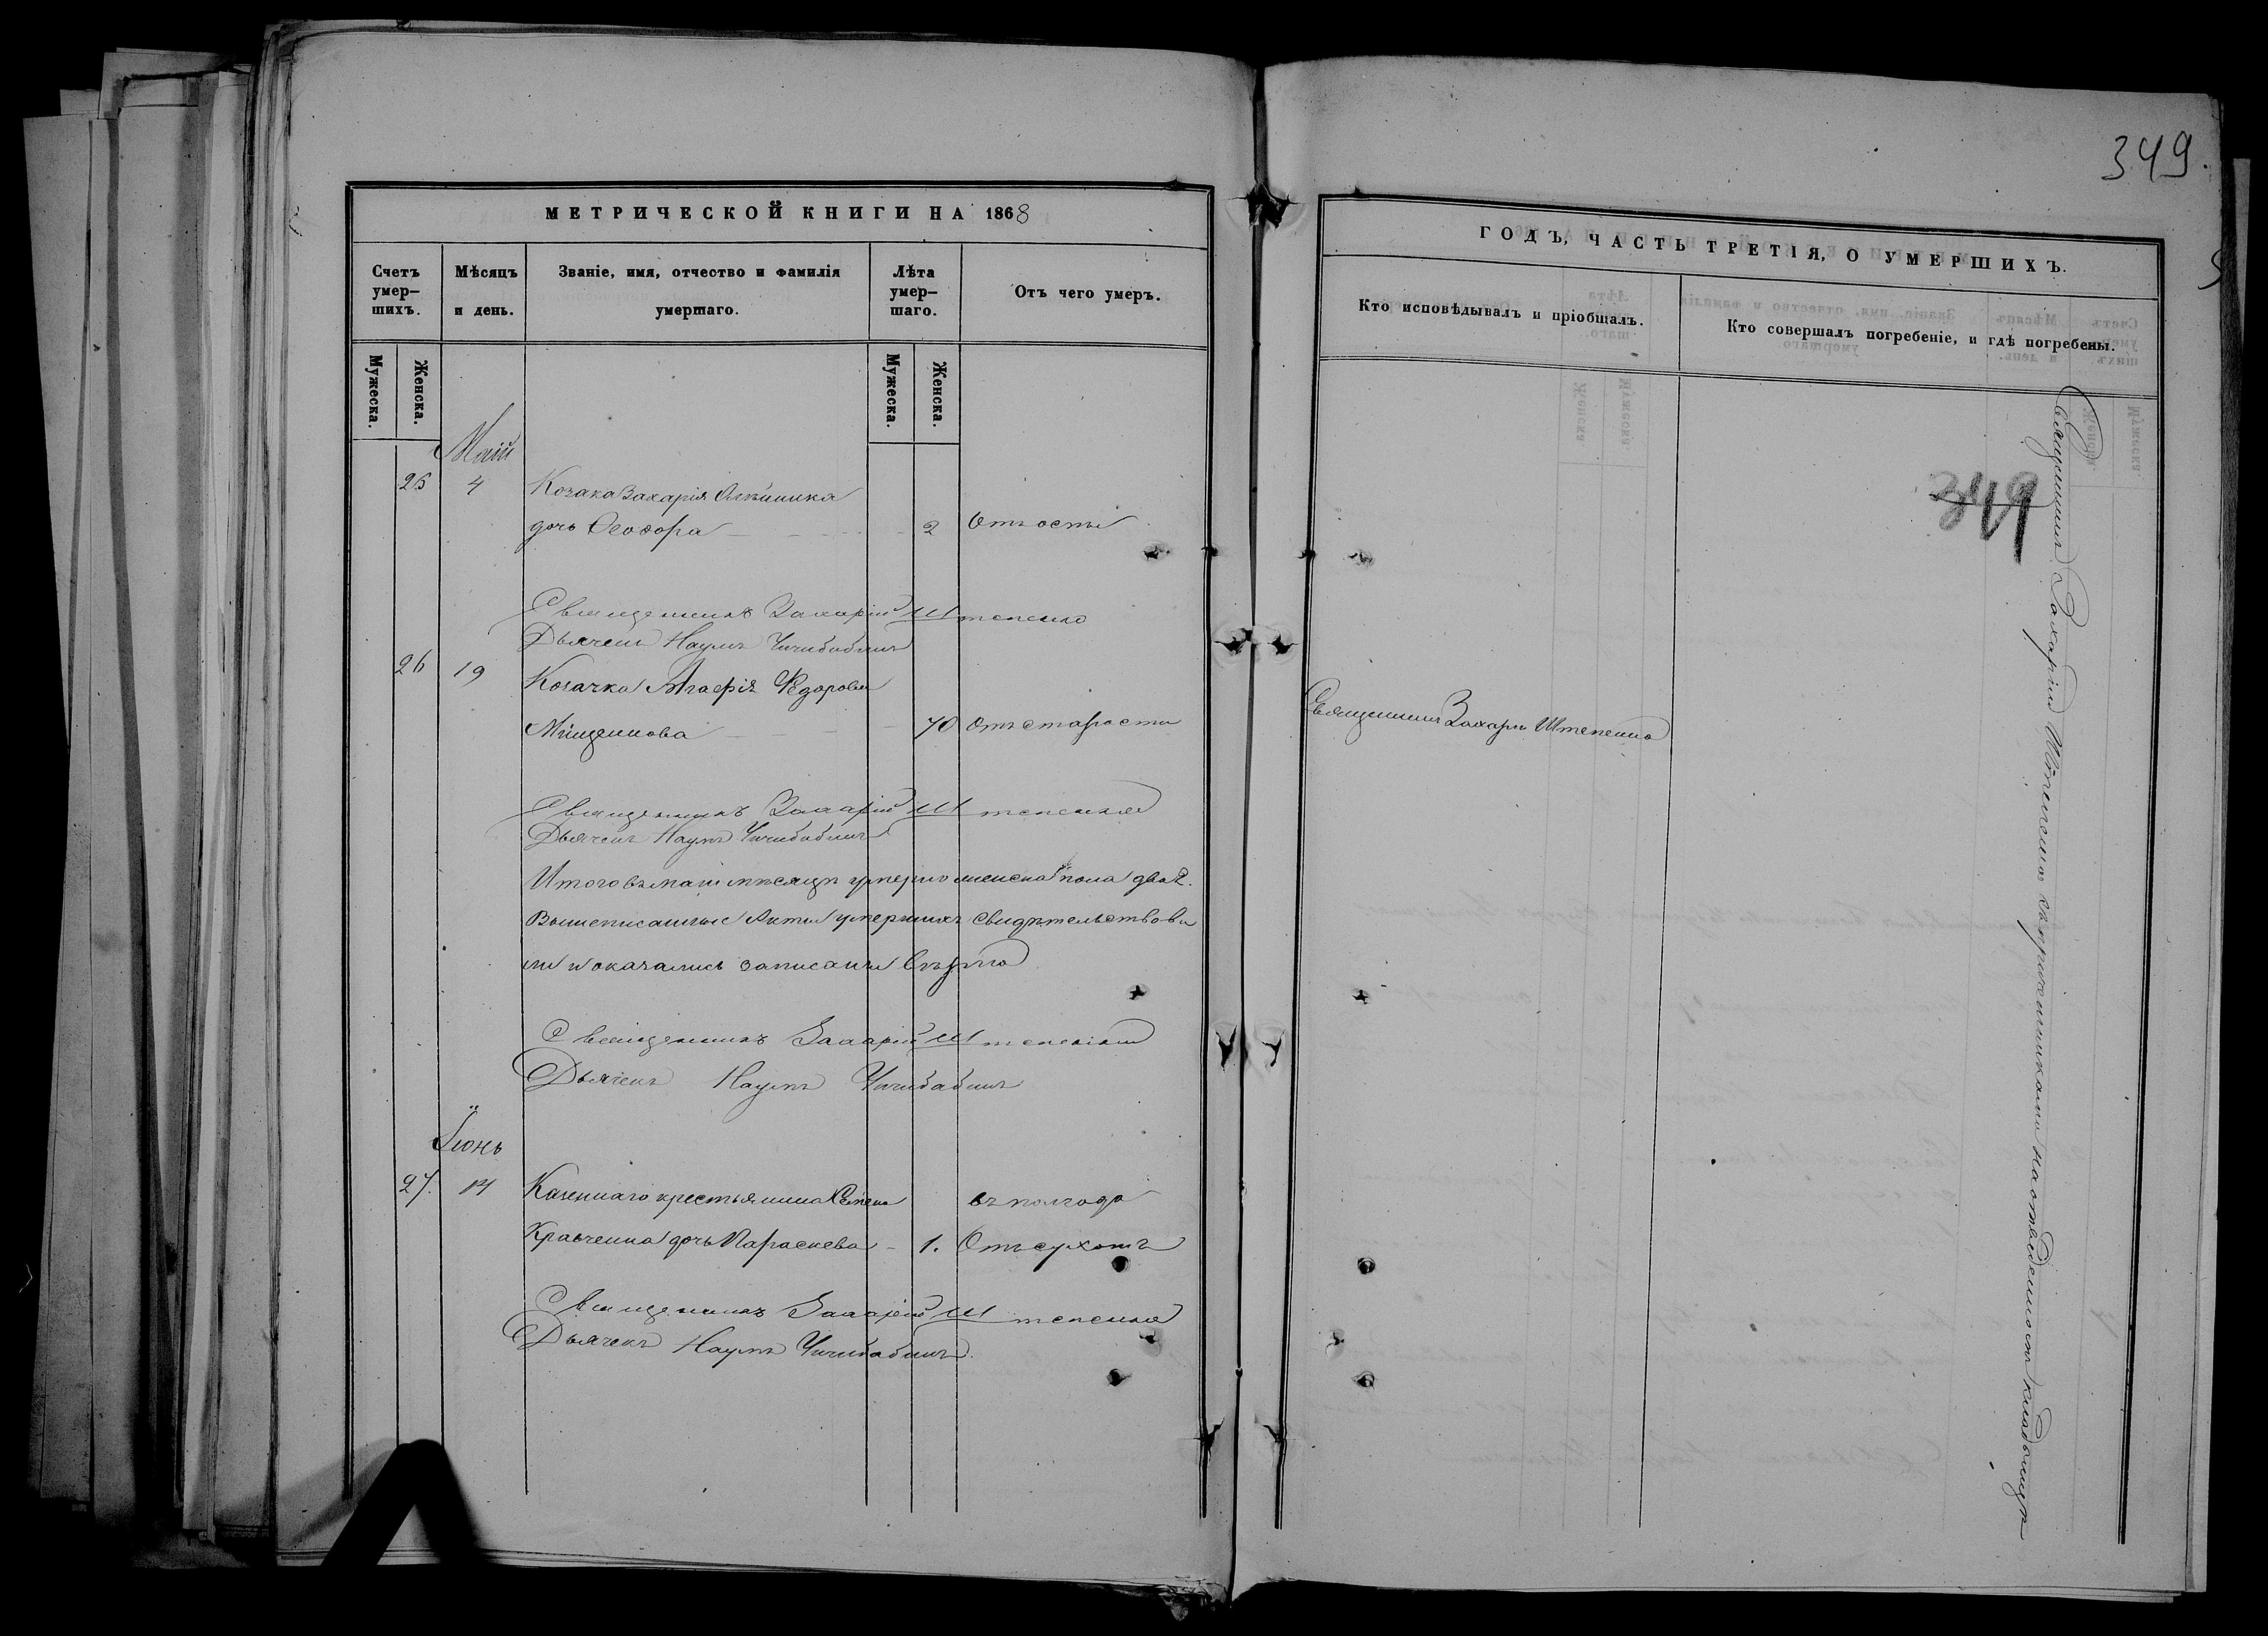 МЕТРИЧЕСКОЙ КНИГИ НА 1868
Счетъ умер–шихъ.
Мѣсяцъ и день.
Званіе, имя, отчество и фамилія умершаго.
Лѣта умер–шаго.
Отъ чего умеръ.
Мужеска.
Женска.
Мужеска.
Женска.
Маій
25 4 Козака Захарія
дочь Феодора 2 Отъ оспы
Священникъ Захарій Штепенко
Дьячекъ Наумъ Чичибабинъ
26 19 Козачка Агафія Федорова
Мищенкова 70 Отъ старости
Священникъ Захарій Штепенко
Дьячекъ Наумъ Чичибабинъ
Итого въ маіи мѣсяцѣ умерло женска пола двѣ 2.
Вышеписанные Акты умершихъ свидѣтельствова
ли и оказались записаны вѣрно
Священникъ Захарій Штепенко
Дьячекъ Наумъ Чичибабинъ
Іюнь
27. 14 Казеннаго крестьянина Семена въ полгода
Кравченка дочь Параскева 1. Отъ сухотъ
Священникъ Захарій Штепенко
Дьячекъ Наумъ Чичибабинъ
349.
ГОДЪ, ЧАСТЬ ТРЕТІЯ, О УМЕРШИХЪ.
Кто исповѣдывалъ и пріобщалъ.
Кто совершалъ погребеніе, и гдѣ погребены.
349
Священникъ Захарій Штепенко
Священникъ Захарій Штепенко съ причетниками на отведенномъ кладбищѣ